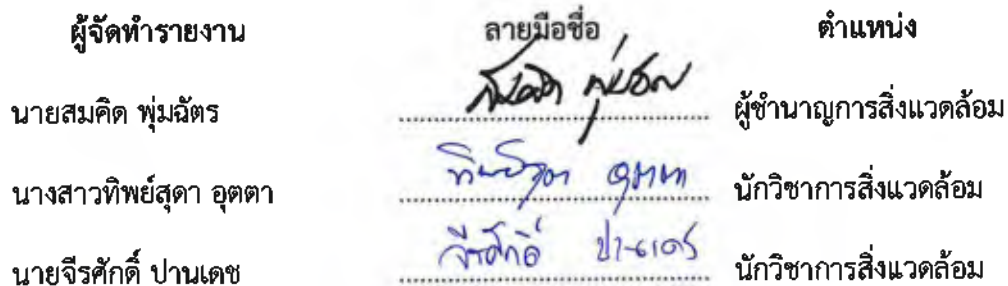 ผู้จัดทำรายงาน ลายมือชื่อ ตำแหน่ง
นายสมคิด พุ่มฉัตร สมคิด พุ่มฉัตร ผู้ชำนาญการสิ่งแวดล้อม
นางสาวทิพย์สุดา อุตตา ทิพย์สุดา อุตตา นักวิชาการสิ่งแวดล้อม
นายจีรศักดิ์ ปานเดช จีรศักดิ์ ปานเดช นักวิชาการสิ่งแวดล้อม